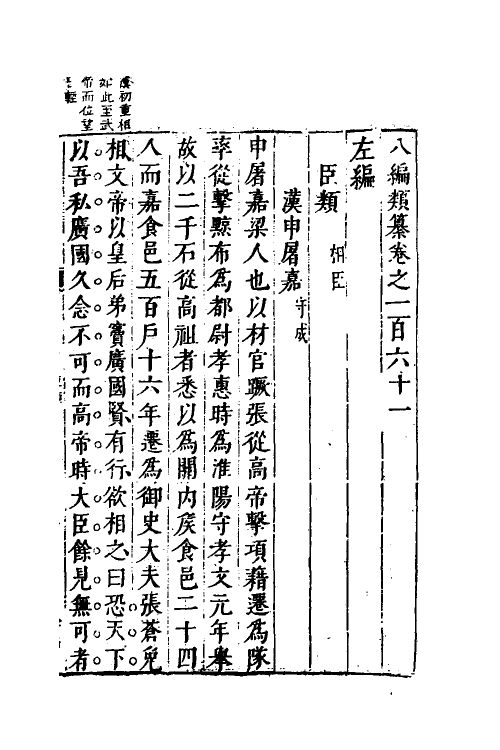 八編類纂卷之一百六十一
左編
臣類 相臣
漢申屠嘉 守成
申屠嘉梁人也以材官蹶張從高帝擊項籍遷為隊
率從擊黥布為都尉孝惠時為淮陽守孝文元年舉
故以二千石從高祖者悉以為關內侯食邑二十四
人而嘉食邑五百戶十六年遷為御史大夫張蒼免
相文帝以皇后弟竇廣國賢有行欲相之曰恐天下
以吾私廣國久念不可而高帝時大臣餘見無可者
漢初重相
如此至武
帝而位望
輕